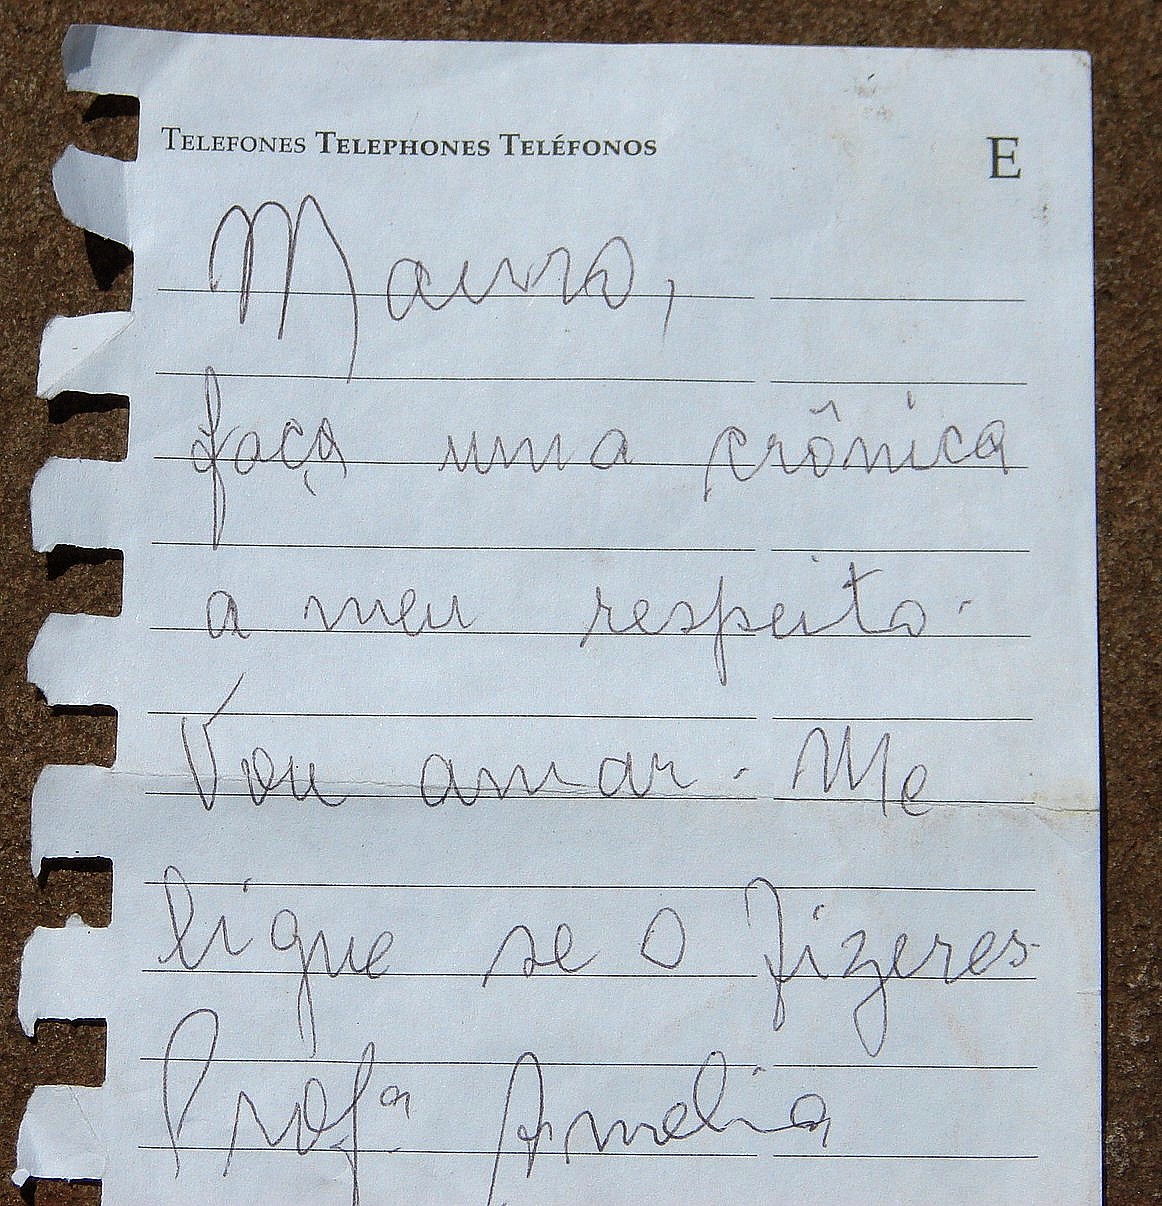 TELEFONES TELEPHONES TELÉFONOS E
Mauro,
faça uma crônica
a meu respeito.
Vou amar. Me
ligue se o fizeres.
Profª Amelia